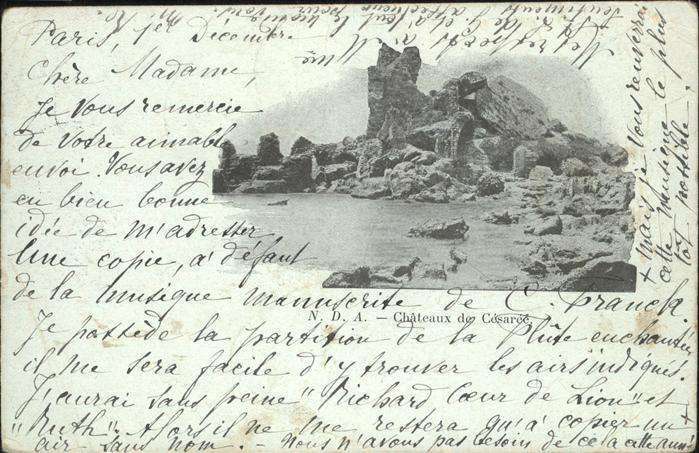 Paris, 1er Décembre
Chère Madame,
Je vous remercie
de votre aimable
envoi. Vous avez
eu bien bonne
idée de m'adresser
une copie, à défaut
de la musique manuscrite de C. Franck.
N. D. A. — Châteaux de Césarée
Je possède la partition de la Flûte enchantée
il me sera facile d'y trouver les airs indiqués.
J'aurai sans peine "Richard Cœur de Lion" et
"Ruth". Alors il ne me restera qu'à copier un
air sans nom. - Nous n'avons pas besoin de cela cette année
+ mais je vous renverrai
cette musique le plus
tôt possible.